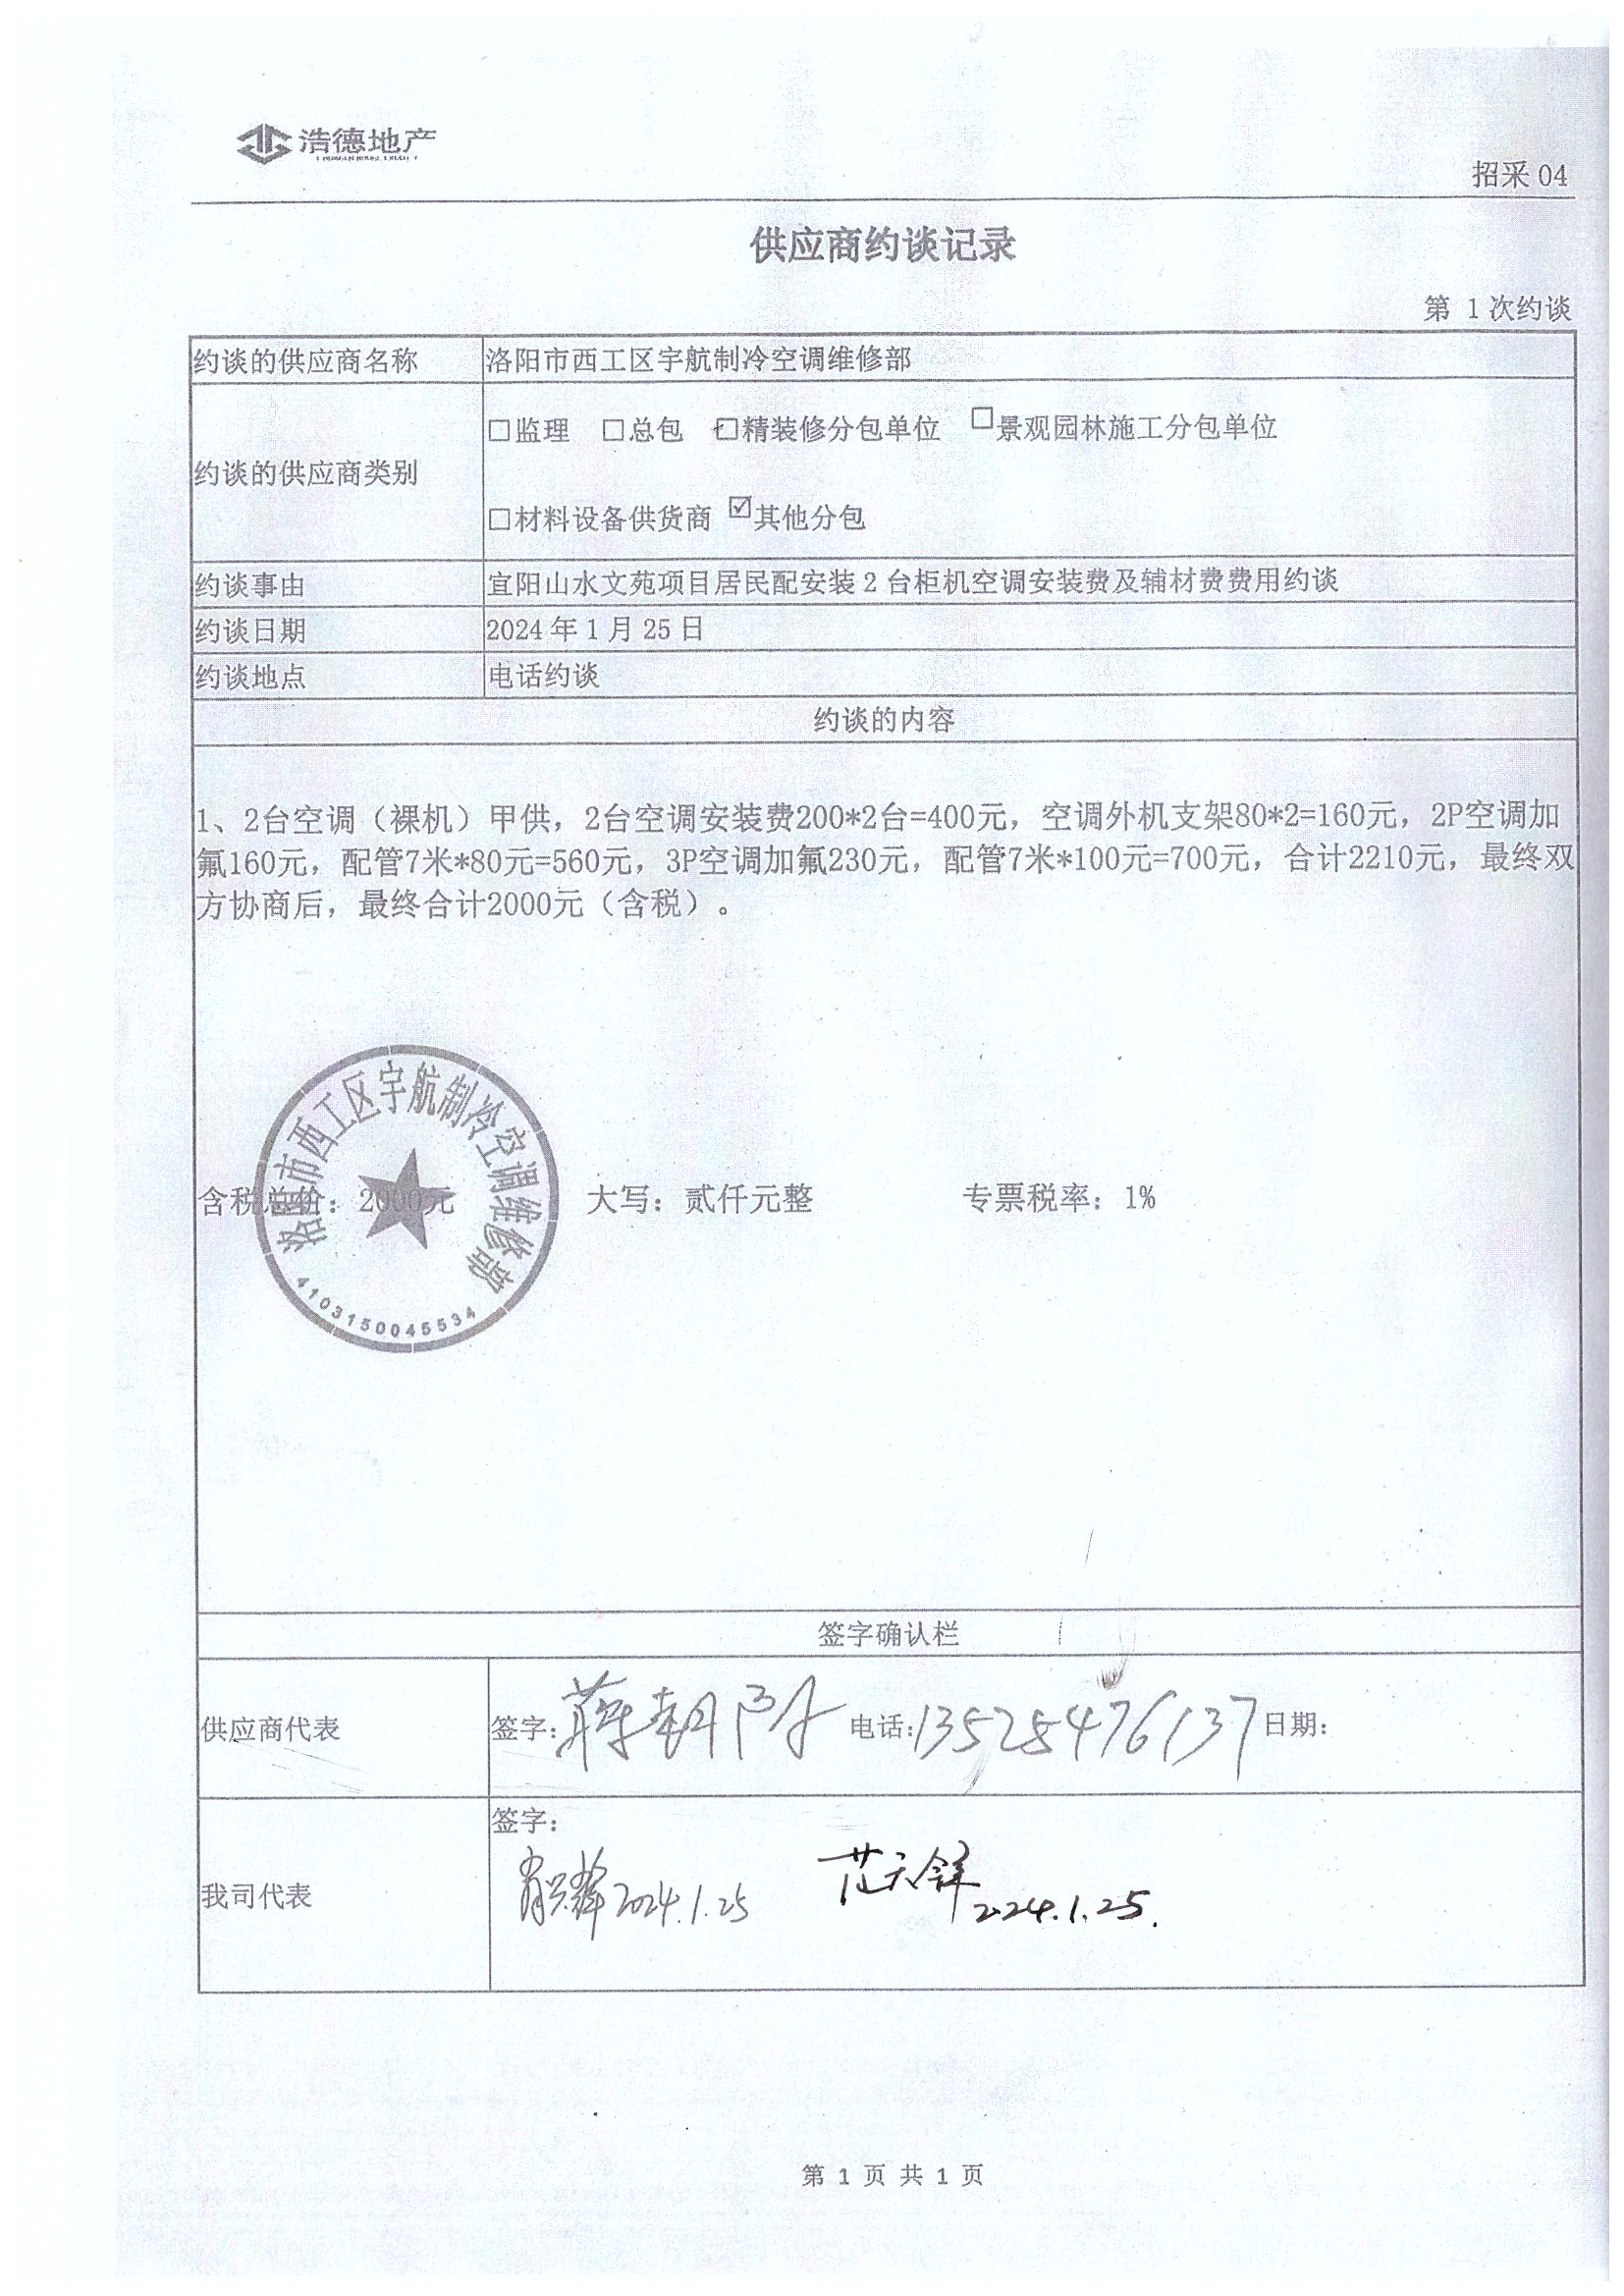 浩德地产
招采 04
供应商约谈记录
第 1 次约谈
约谈的供应商名称 洛阳市西工区宇航制冷空调维修部
约谈的供应商类别
□监理 □总包 □精装修分包单位 □景观园林施工分包单位
□材料设备供货商 ☑其他分包
约谈事由 宜阳山水文苑项目居民配安装 2 台柜机空调安装费及辅材费费用约谈
约谈日期 2024 年 1 月 25 日
约谈地点 电话约谈
约谈的内容
1、2台空调（裸机）甲供，2台空调安装费200*2台=400元，空调外机支架80*2=160元，2P空调加
氟160元，配管7米*80元=560元，3P空调加氟230元，配管7米*100元=700元，合计2210元，最终双
方协商后，最终合计2000元（含税）。
洛阳市西工区宇航制冷空调维修部
含税总价：2000元 大写：贰仟元整 专票税率：1%
4103150045534
签字确认栏
供应商代表 签字: 电话:13525476137 日期:
我司代表 签字:
2024.1.25 2024.1.25.
第 1 页 共 1 页